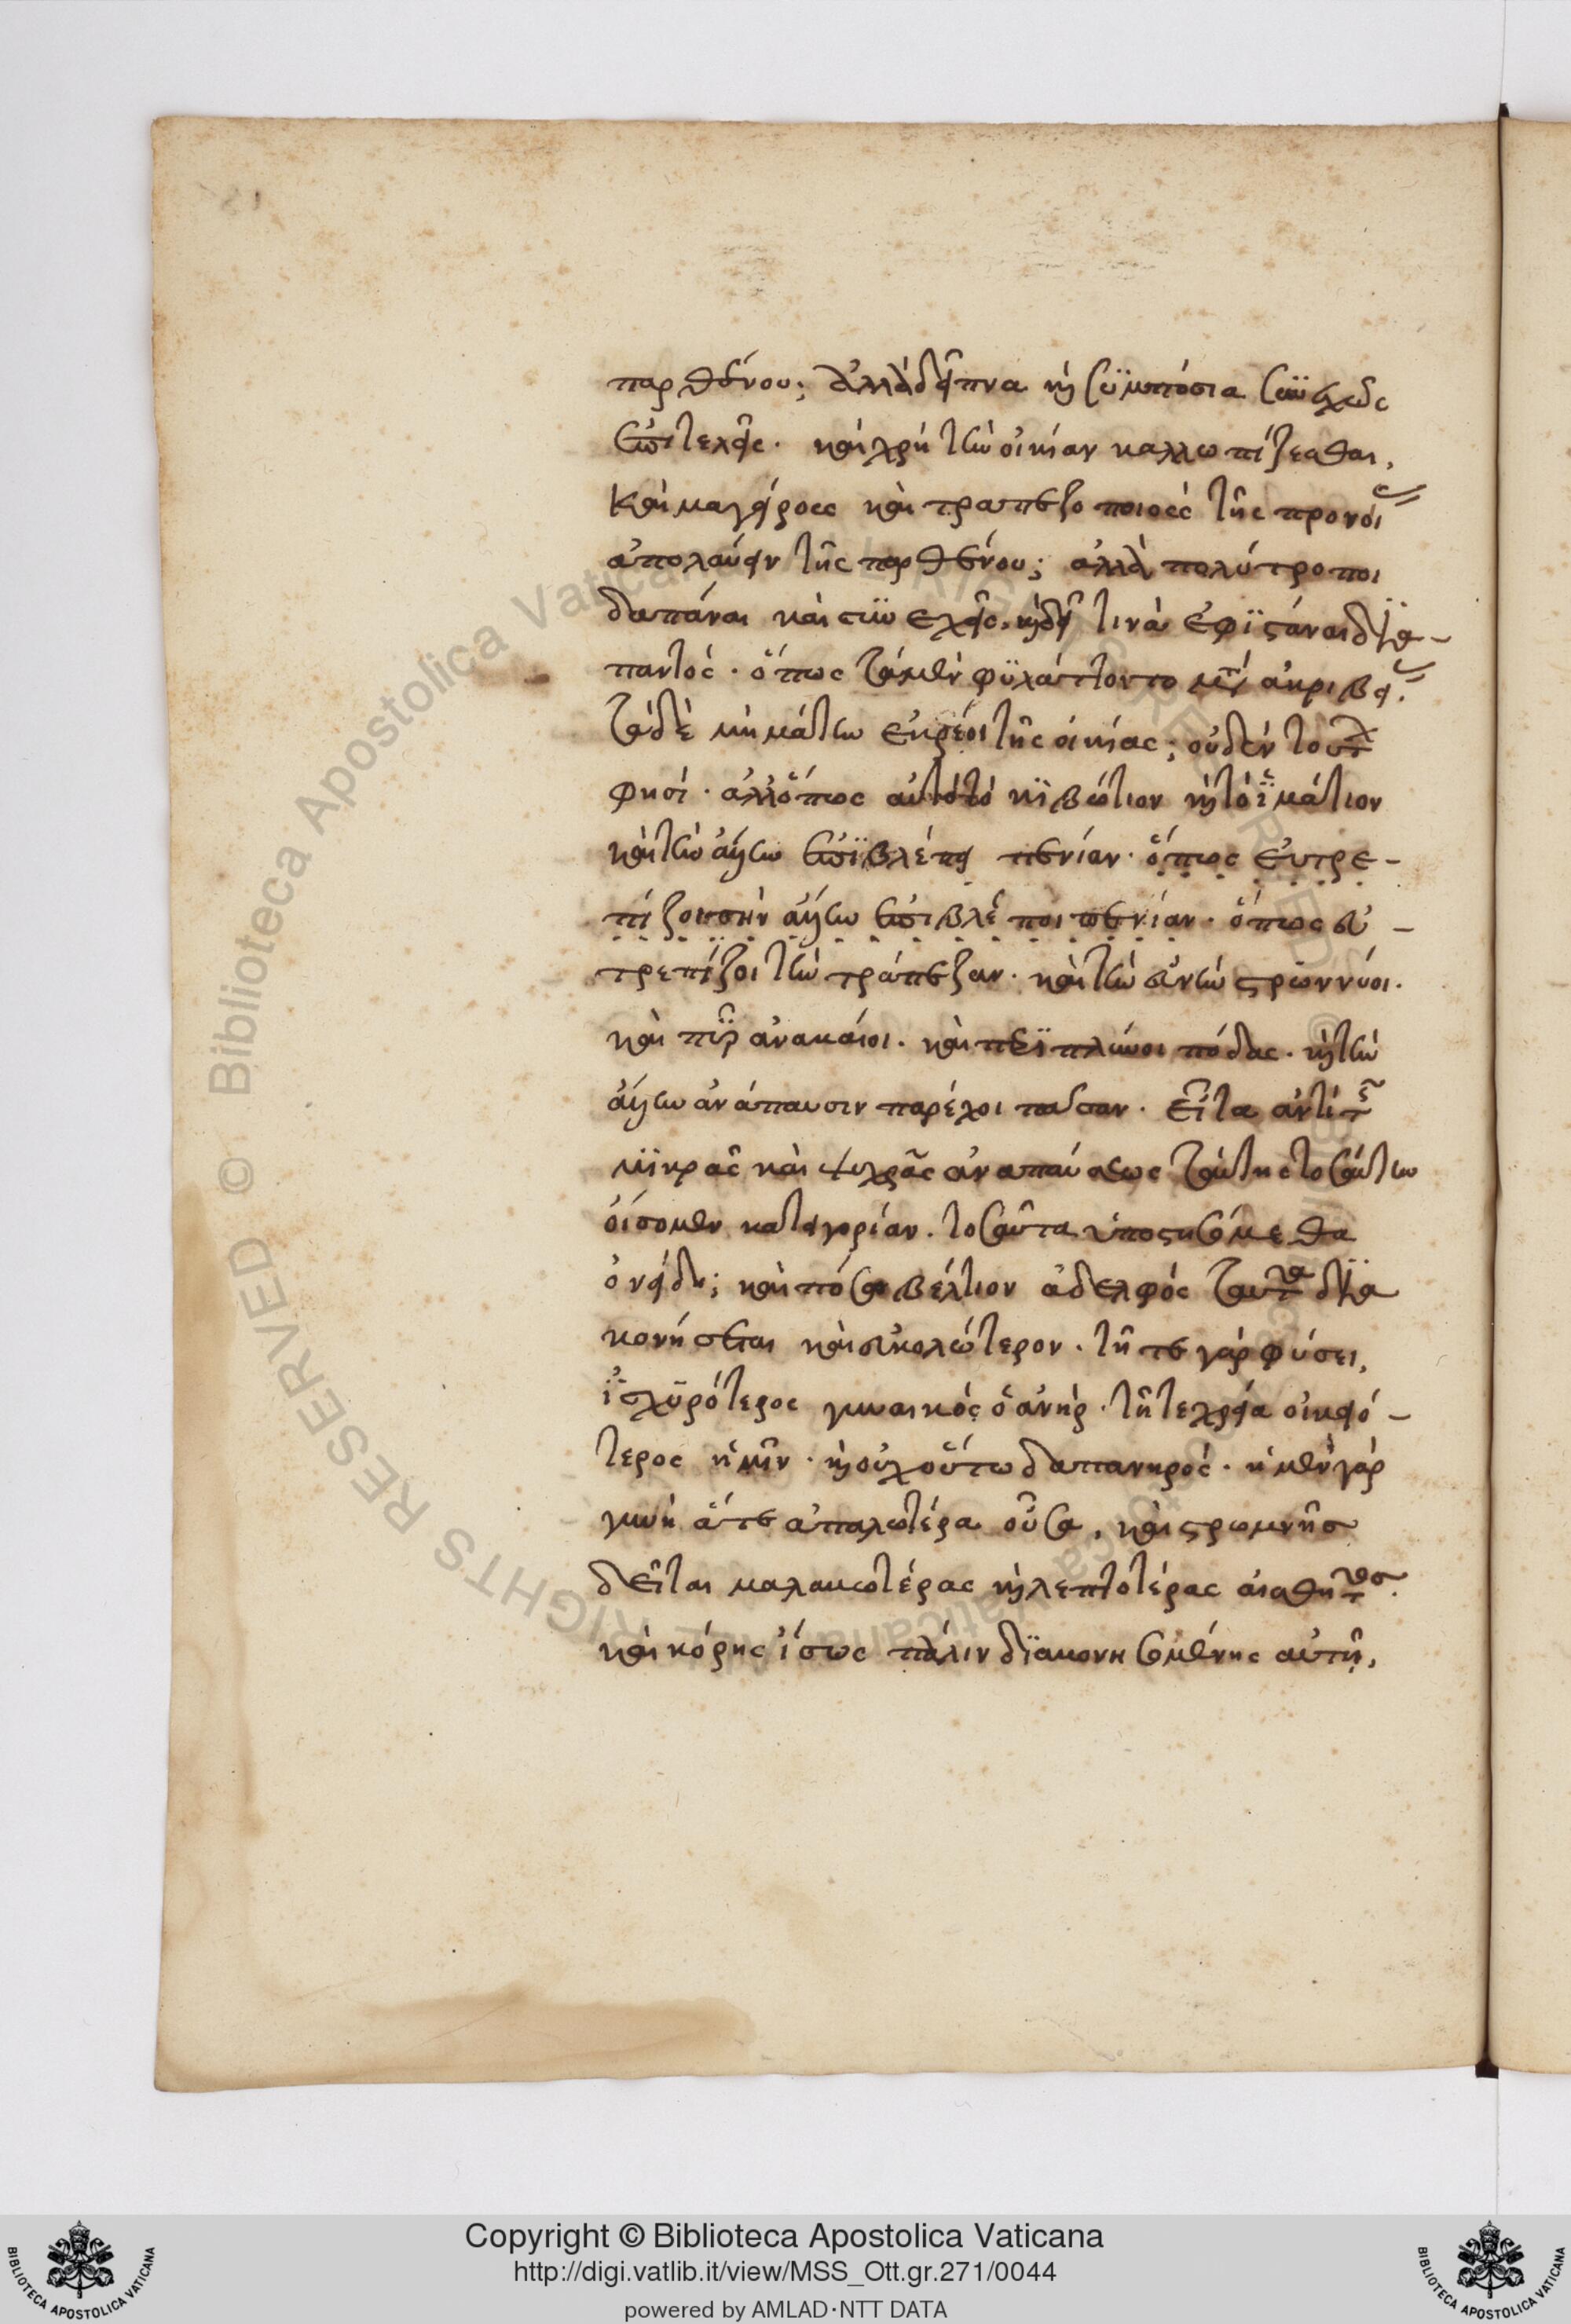 παρθένου; ἀλλὰ δεῖπνα καὶ συμπόσια συνεχῶς
ἐπιτελεῖς. καὶ χρὴ τὴν οἰκίαν καλλωπίζεσθαι,
καὶ μαγείρους καὶ τραπεζοποιοὺς τῆς προνοίας
ἀπολαύειν τῆς παρθένου; ἀλλὰ πολύτροποι
δαπάναι καὶ συνεχεῖς. καὶ δεῖ τινὰ ἐφϊστάναι δϊα-
παντός. ὅπως τὰ μὲν φυλάττοιτο μετὰ ἀκριβείας.
τὰ δὲ μὴ μάτην ἐκρέοι τῆς οἰκίας; οὐδὲν τούτων
φησί. ἀλλ' ὅπως αὐτὸ τὸ κϊβώτιον καὶ τὸ ἱμάτιον
καὶ τὴν ἄλλην ἐπϊβλέπη πενίαν. ὅπως εὐτρε-
πίζοι τὴν ἄλλην ἐπιβλέποι πενίαν. ὅπως εὐ-
τρεπίζοι τὴν τράπεζαν. καὶ τὴν εὐνὴν στρωννύοι.
καὶ πῦρ ἀνακαίοι. καὶ περϊπλύνοι πόδας. καὶ τὴν
ἄλλην ἀνάπαυσιν παρέχοι πᾶσαν. εἶτα ἀντὶ τῆς
μϊκρᾶς καὶ ψυχρᾶς ἀναπαύσεως ταύτης τοσαύτην
οἴσομεν κατηγορίαν. τοσαῦτα ὑποστησόμεθα
ὀνείδη; καὶ πόσω βέλτιον ἀδελφὸς ταῦτα δϊα
κονήσεται καὶ εὐκολώτερον. τῆ τε γὰρ φύσει,
ἰσχυρότερος γυναικὸς ὁ ἀνὴρ. τῆ τε χρεία οἰκειό-
τερος ἡμῖν. καὶ οὐχ οὕτω δαπανηρός. ἡ μὲν γὰρ
γυνὴ ἅτε ἁπαλωτέρα οὖσα, καὶ στρωμνῆς
δεῖται μαλακωτέρας καὶ λεπτοτέρας αἰσθήτος.
καὶ κόρης ἴσως πάλιν δϊακονησομένης αὐτῆ,
Copyright © Biblioteca Apostolica Vaticana
http://digi.vatlib.it/view/MSS_Ott.gr.271/0044
powered by AMLAD·NTT DATA
BIBLIOTECA APOSTOLICA VATICANA
BIBLIOTECA APOSTOLICA VATICANA
© Biblioteca Apostolica Vaticana ALL RIGHTS RESERVED